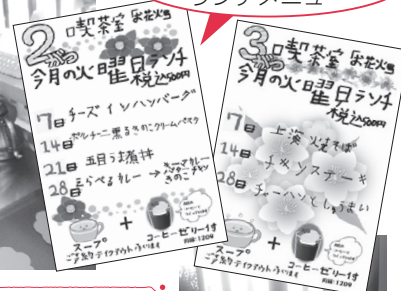 ランチメニュー
2月の
喫茶室「お花火田」
今月の火曜日ランチ
税込500円
7日 チーズインハンバーグ
14日 ポルチーニ薫るきのこクリームパスタ
21日 五目うま煮丼
28日 えらべるカレー → キーマカレー
バターチキン
きのこ
+
スープ
コーヒーゼリー付
ご予約テイクアウトあります
3月の
喫茶室「お花火田」
今月の火曜日ランチ
税込500円
7日 上海焼そば
14日 チキンステーキ
28日 チャーハンとしゅうまい
+
スープ
コーヒーゼリー付
ご予約テイクアウトあります